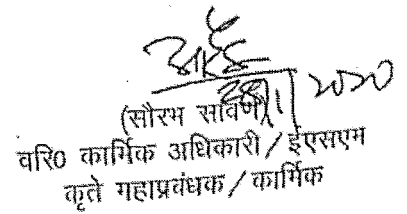 2020
(सौरभ सावर्ण)
वरि0 कार्मिक अधिकारी / ईएसएम
कृते गहाप्रवंधक / कार्मिक